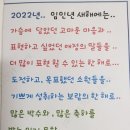 2022년.. 임인년 새해에는..
가슴에 담았던 고마운 마음과
표현하고 싶었던 애정의 말들을
더 많이 표현 할 수 있는 한 해로...
도전하고, 목표했던 소원들을
기쁘게 성취하는 보람의 한 해로..
많은 박수와, 많은 축하를